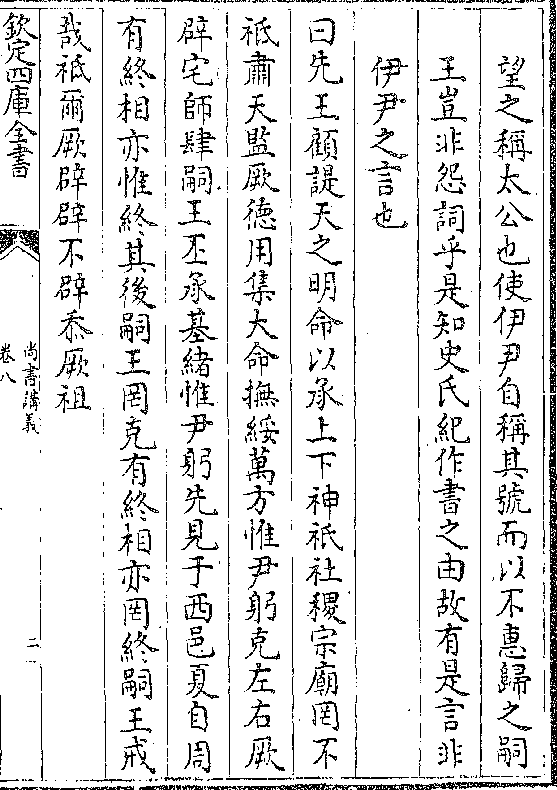 望之稱太公也使伊尹自稱其號而以不惠歸之嗣
王豈非怨詞乎是知史氏紀作書之由故有是言非
伊尹之言也
曰先王顧諟天之明命以承上下神祇社稷宗廟罔不
祇肅天監厥德用集大命撫綏萬方惟尹躬克左右厥
辟宅師肆嗣王丕承基緒惟尹躬先見于西邑夏自周
有終相亦惟終其後嗣王罔克有終相亦罔終嗣王戒
哉祇爾厥辟辟不辟忝厥祖
欽定四庫全書
尚書講義
卷八
二